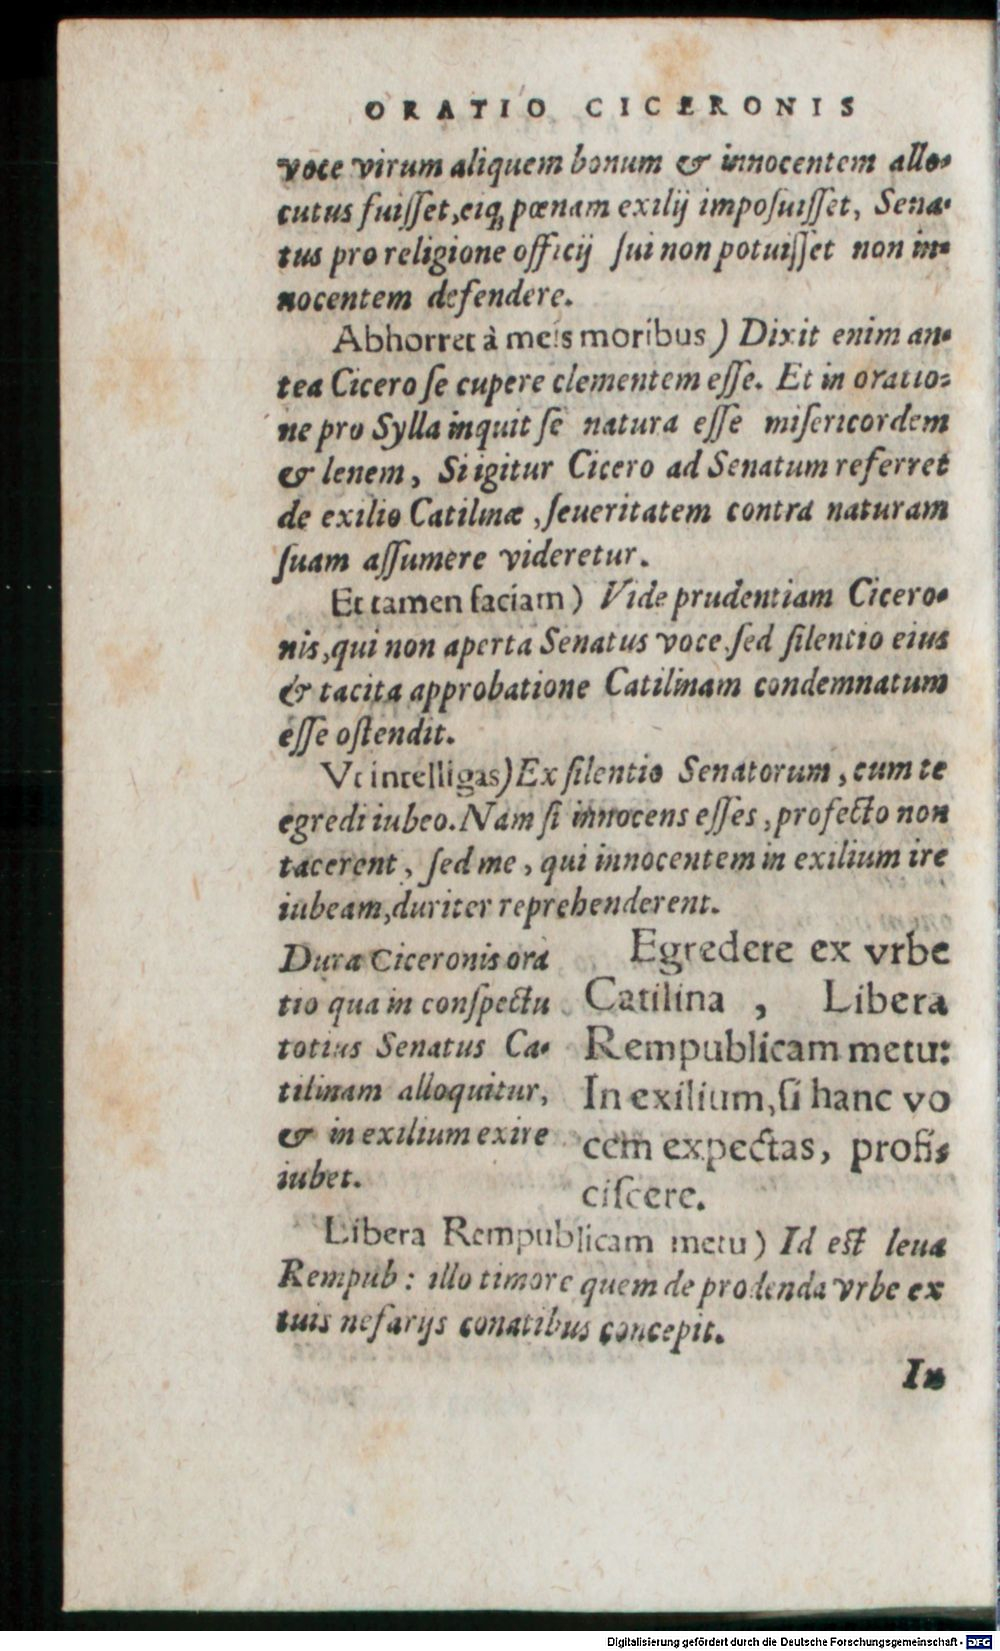 ORATIO CICERONIS
voce virum aliquem bonum & innocentem allo-
cutus fuiſſet, eiq́ꝫ pœnam exilij impoſuiſſet, Sena-
tus pro religione officij ſui non potuiſſet non in-
nocentem defendere.
Abhorret à meis moribus) Dixit enim an-
tea Cicero ſe cupere clementem eſſe. Et in oratio-
ne pro Sylla inquit ſe natura eſſe miſericordem
& lenem, Si igitur Cicero ad Senatum referret
de exilio Catilinæ, ſeueritatem contra naturam
ſuam aſſumere videretur.
Et tamen faciam) Vide prudentiam Cicero-
nis, qui non aperta Senatus voce, ſed ſilentio eius
& tacita approbatione Catilinam condemnatum
eſſe oſtendit.
Vt intelligas) Ex ſilentio Senatorum, cum te
egredi iubeo. Nam ſi innocens eſſes, profecto non
tacerent, ſed me, qui innocentem in exilium ire
iubeam, duriter reprehenderent.
Dura Ciceronis ora
tio qua in conſpectu
totius Senatus Ca-
tilinam alloquitur,
& in exilium exire
iubet.
Egredere ex vrbe
Catilina, Libera
Rempublicam metu:
In exilium, ſi hanc vo
cem expectas, profi-
ciſcere.
Libera Rempublicam metu) Id eſt leua
Rempub: illo timore quem de prodenda vrbe ex
tuis nefarijs conatibus concepit.
In
Digitalisierung gefördert durch die Deutsche Forschungsgemeinschaft - DFG